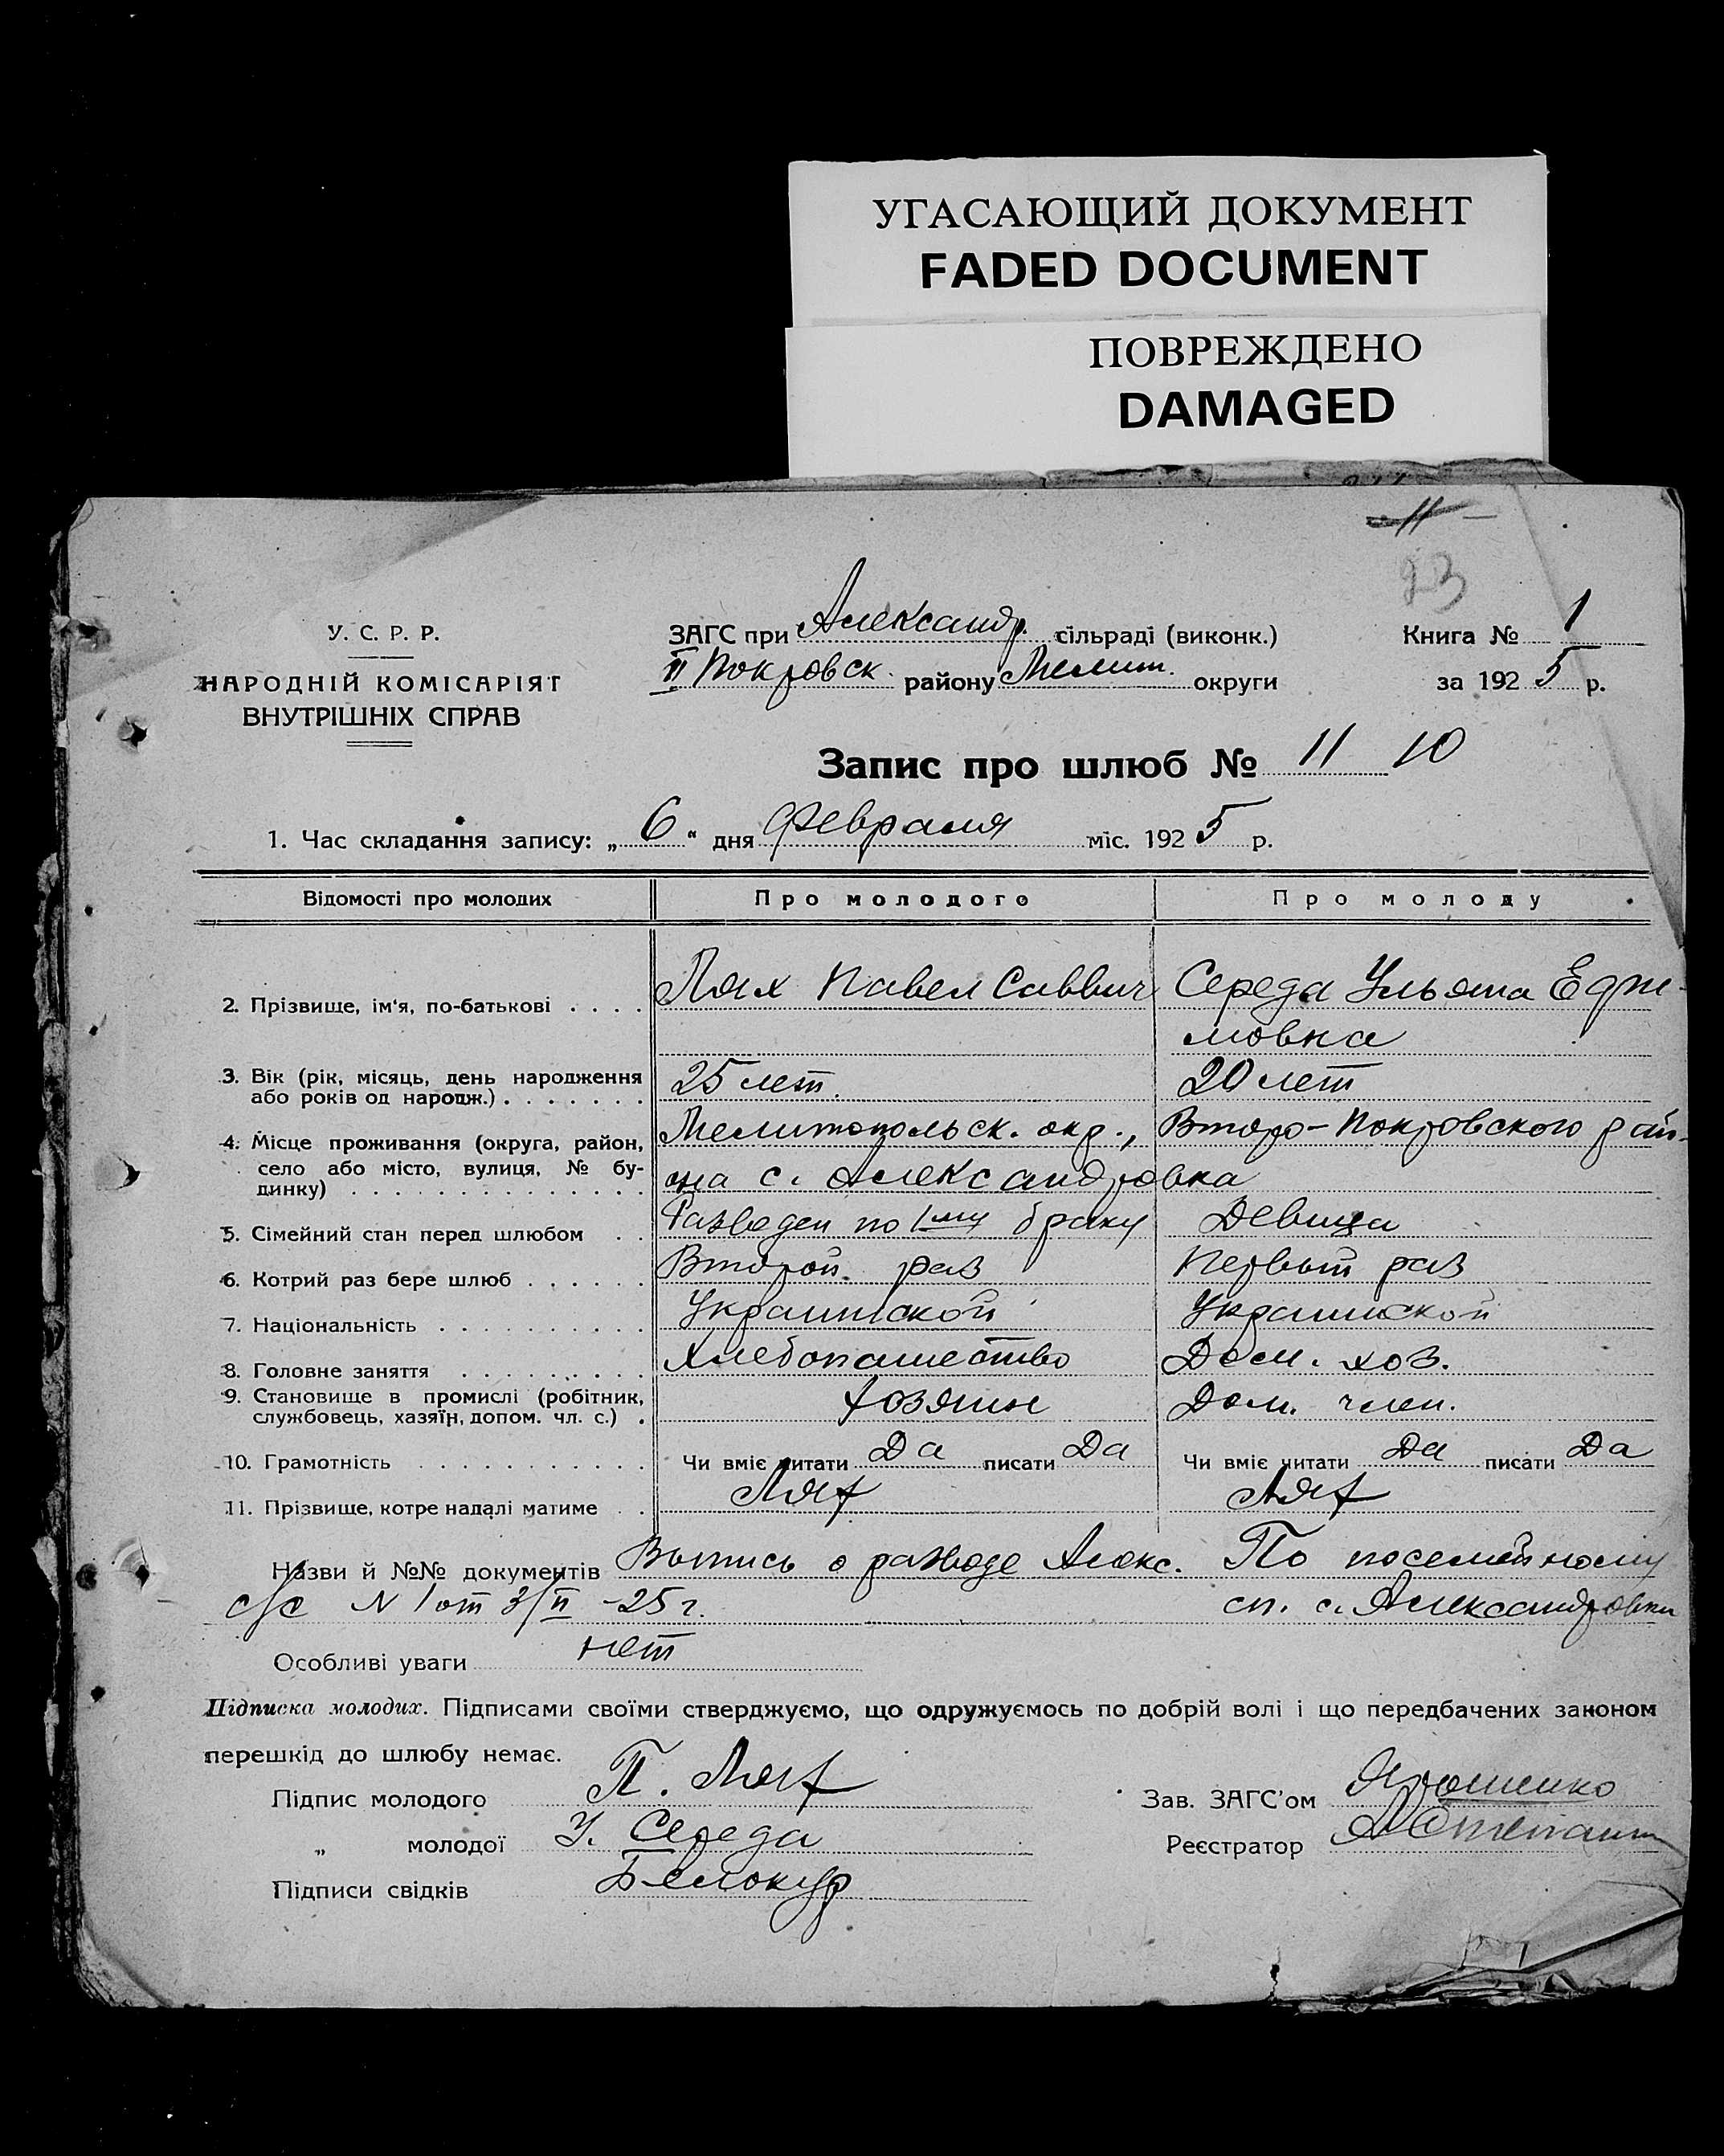 УГАСАЮЩИЙ ДОКУМЕНТ
FADED DOCUMENT
ПОВРЕЖДЕНО
DAMAGED
11
23
У. С. Р. Р.
НАРОДНІЙ КОМІСАРІЯТ
ВНУТРІШНІХ СПРАВ
ЗАГС при Александр. сільраді (виконк.)
II Покровск. району Мелит. округи
Книга № 1
за 1925 р.
Запис про шлюб № 11 10
1. Час складання запису: „6“ дня Февраля міс. 1925 р.
Відомості про молодих Про молодого Про молоду
2. Прізвище, ім'я, по-батькові . . . . Лях Павел Саввич Середа Ульяна Ефи-
мовна
3. Вік (рік, місяць, день народження або років од народж.) . . . . . . . 25 лет. 20 лет
4. Місце проживання (округа, район, Мелитопольск. окр., Второ-Покровского рай-
село або місто, вулиця, № бу-динку) . . . . . . . . . . . . . . она с. Александровка
5. Сімейний стан перед шлюбом . . Разведен по 1му браку Девица
6. Котрий раз бере шлюб . . . . . . Второй раз Первый раз
7. Національність . . . . . . . . . . Украинской Украинской
8. Головне заняття . . . . . . . . . Хлебопашество Дом. хоз.
9. Становище в промислі (робітник, службовець, хазяїн, допом. чл. с.) . Хозяин Дом. член.
10. Грамотність . . . . . . . . . . . Чи вміє читати Да писати Да Чи вміє читати Да писати Да
11. Прізвище, котре надалі матиме . . Лях Лях
Назви й №№ документів Выпись о разводе Алекс. По посемейному
с/с N 1 от 3/II -25 г. сп. с. Александровки
Особливі уваги нет
Підписка молодих. Підписами своїми стверджуємо, що одружуємось по добрій волі і що передбачених законом
перешкід до шлюбу немає.
Підпис молодого П. Лях
„ молодої У. Середа
Підписи свідків Белокур
Зав. ЗАГС'ом Ярошенко
Реєстратор